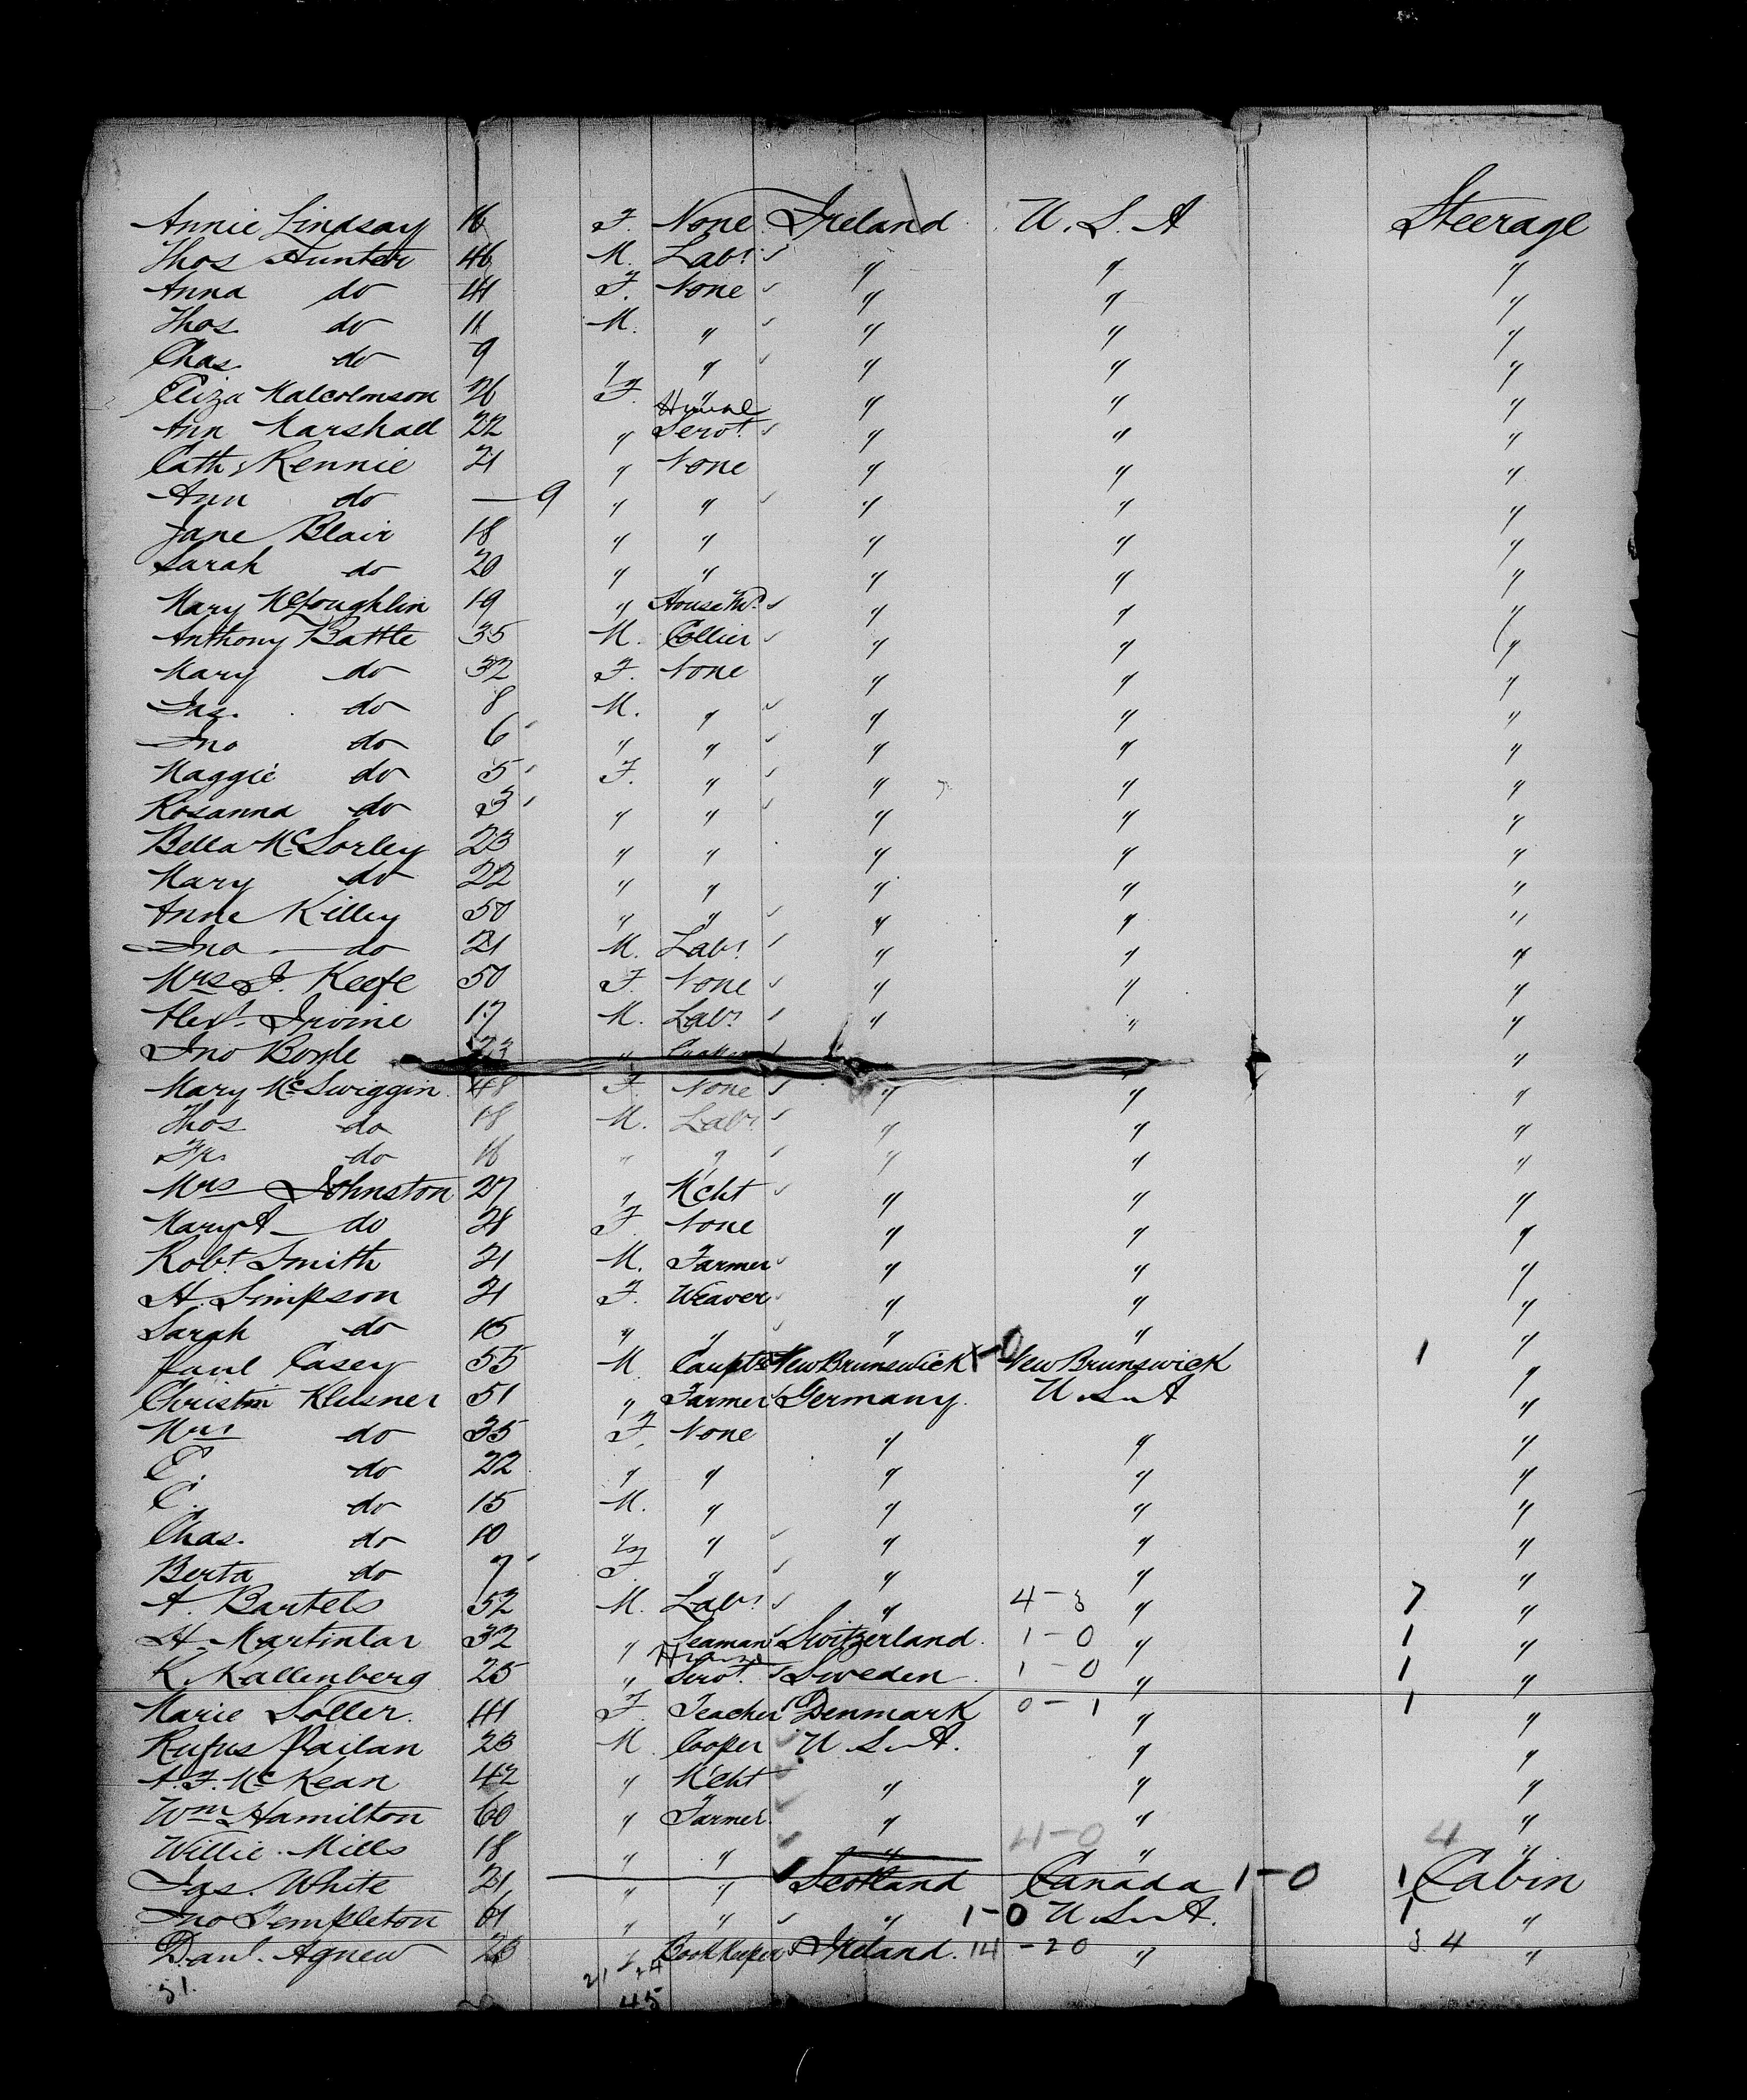 Annie Lindsay 16 F. None Ireland U.S.A Steerage
Thos Hunter 46 M. Labr " " "
Anna do 41 F. None " " "
Thos. do 11 M. " " " "
Chas. do 9 " " " " "
Eliza Malcolmson 26 F. " " " "
Ann Marshall 22 " House Servt. " " "
Cath. Rennie 21 " None " " "
Ann do — 9 " " " " "
Jane Blair 18 " " " " "
Sarah do 20 " " " " "
Mary McLoughlin 19 " House Kr. " " "
Anthony Battle 35 M. Collier " " "
Mary do 32 F. None " " "
Jas. do 8 M. " " " "
Jno do 6 " " " " "
Maggie do 5 F. " " " "
Rosanna do 3 " " " " "
Bella McSorley 23 " " " " "
Mary do 22 " " " " "
Anne Killey 50 " " " " "
Jno do 21 M. Labr. " " "
Mrs J. Keefe 50 F. None " " "
Alexr. Irvine 17 M. Labr. " " "
Jno Boyle 23 " "
Mary McSwiggin 48 F. None " " "
Thos do 18 M. Labr. " " "
Fr. do 16 " " " " "
Mrs Johnston 27 " Mcht " " "
Mary A do 28 F. None " " "
Robt. Smith 21 M. Farmer " " "
H. Simpson 21 F. Weaver " " "
Sarah do 15 " " " " "
Paul Casey 55 M. Cauptr New Brunswick 1-0 New Brunswick 1 "
Christin Kleisner 51 " Farmer Germany. U.S.A "
Mrs do 35 F. None " " "
E. do 22 " " " " "
C. do 15 M. " " " "
Chas. do 10 " " " " "
Berta do 7 F. " " " "
A. Bartels 52 M. Labr. " 4-3 " 7 "
H. Martinlar 32 " Seaman Switzerland. 1-0 " 1 "
K. Kallenberg 25 " House Servt. Sweden 1-0 " 1 "
Marie Soller. 41 F. Teacher Denmark 0-1 " 1 "
Rufus Pailan 23 M. Cooper U.S.A. " "
A.F. McKean 42 " Mcht " " "
Wm Hamilton 60 " Farmer. " " "
Willie Mills 18 " " " 4-0 " 4 "
Jas. White 21 " " Scotland Canada 1-0 1 Cabin
Jno Templeton 61 " " " 1-0 U.S.A. 1 "
Danl. Agnew 23 " Bookkeeper Ireland. 14-20 " 34 "
51. 21 24
45